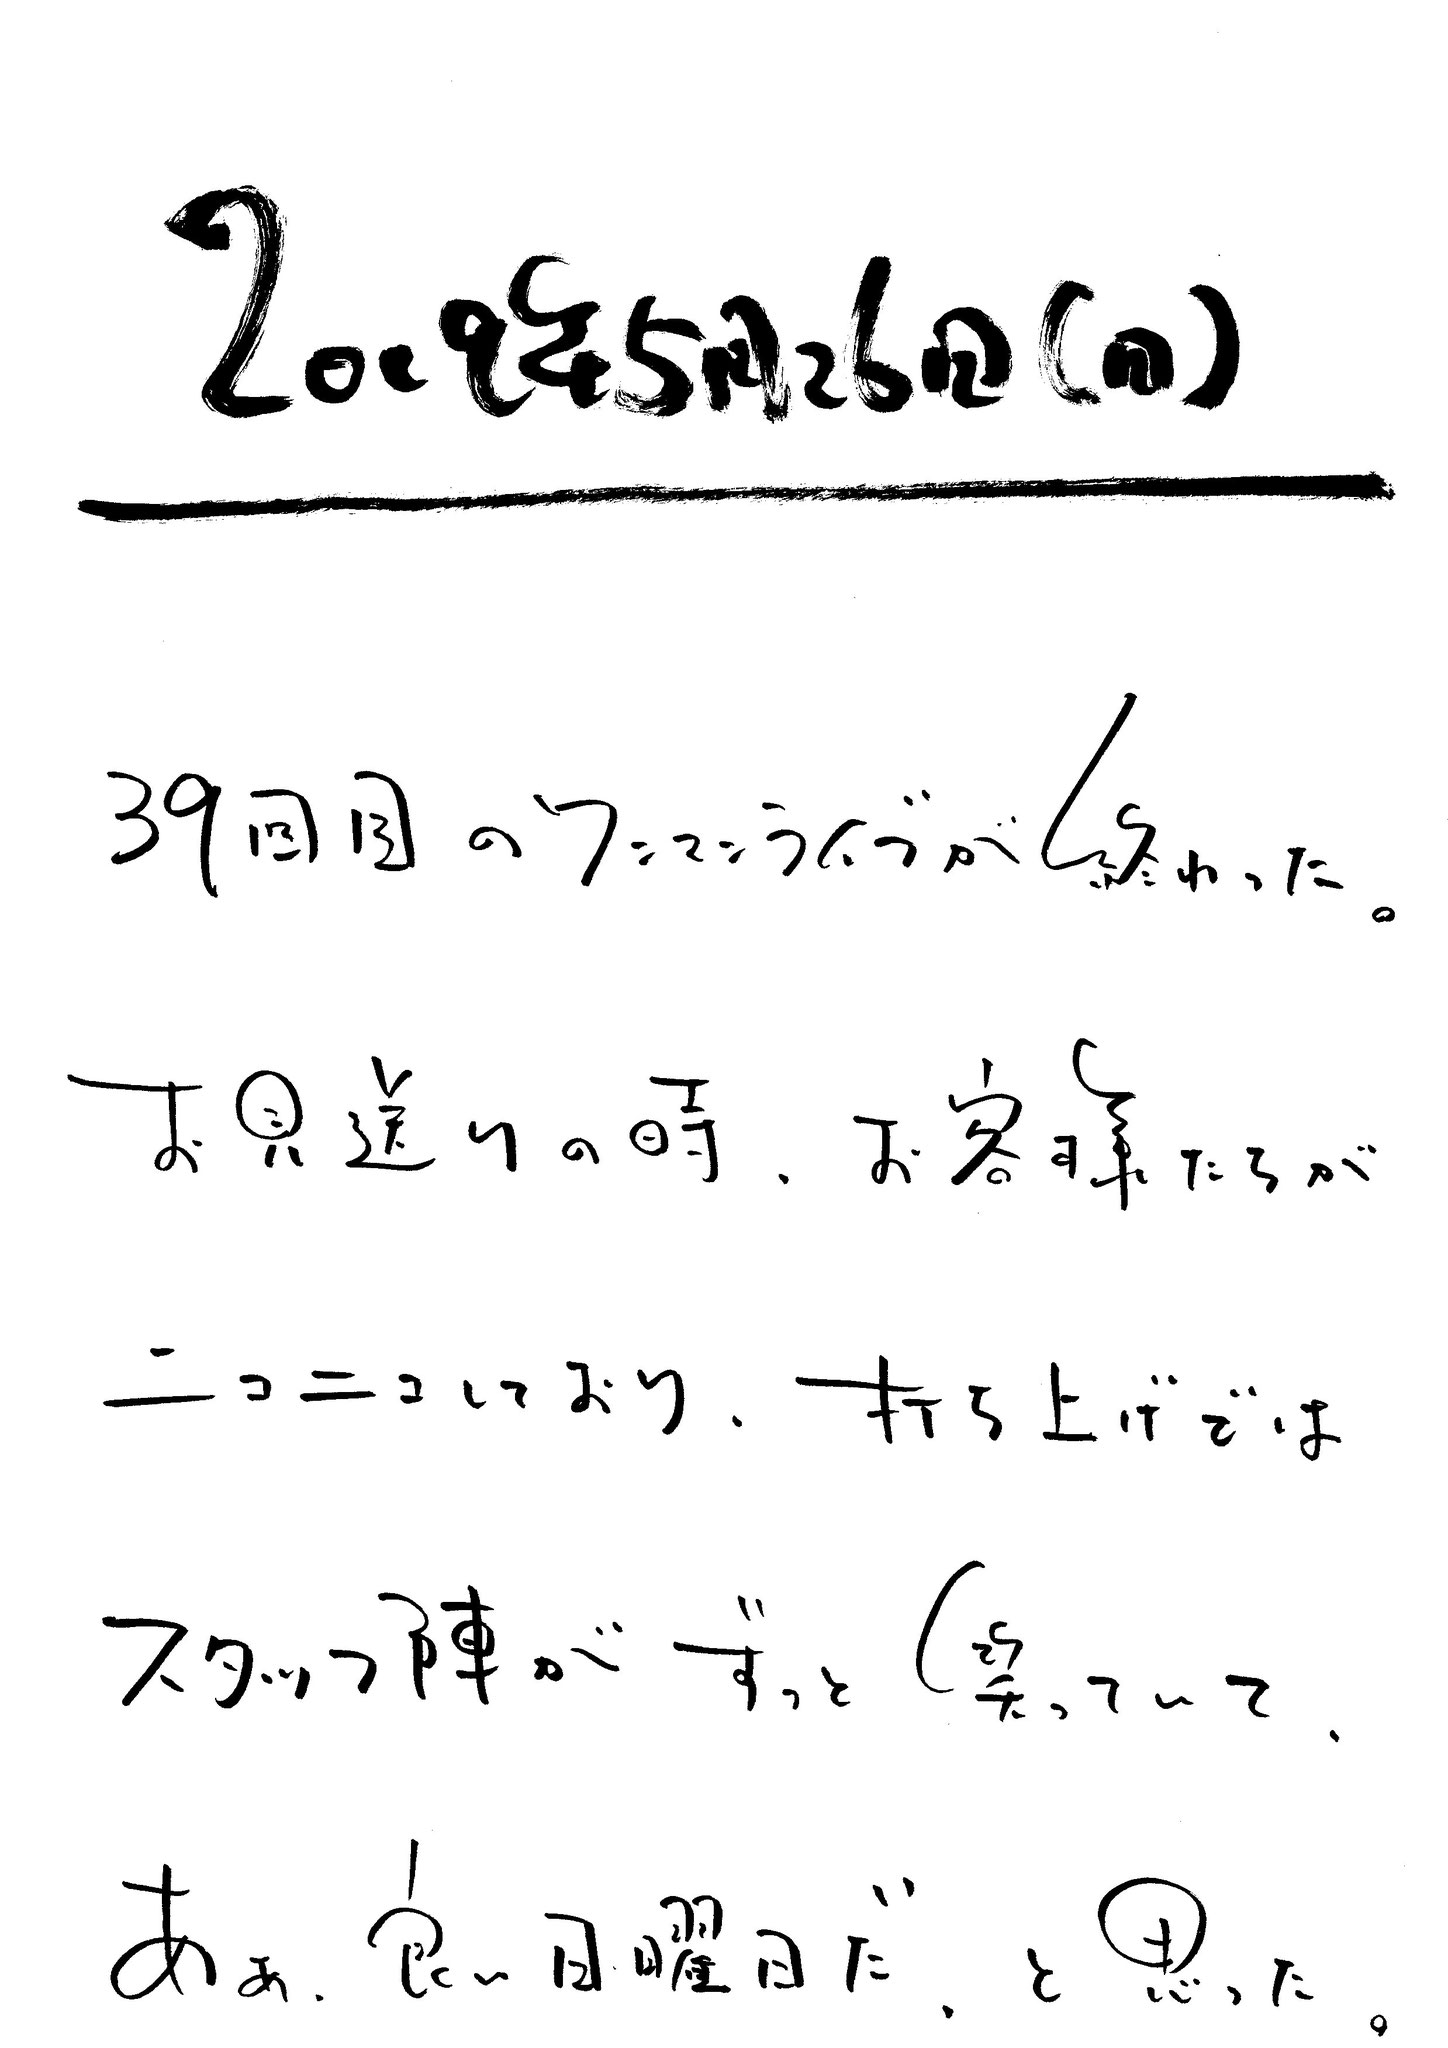 2019年5月26日(日)
39回目のワンマンライブが終わった。
お見送りの時、お客様たちが
ニコニコしており、打ち上げでは
スタッフ陣がずっと笑っていて、
あぁ、良い日曜日だ、と思った。